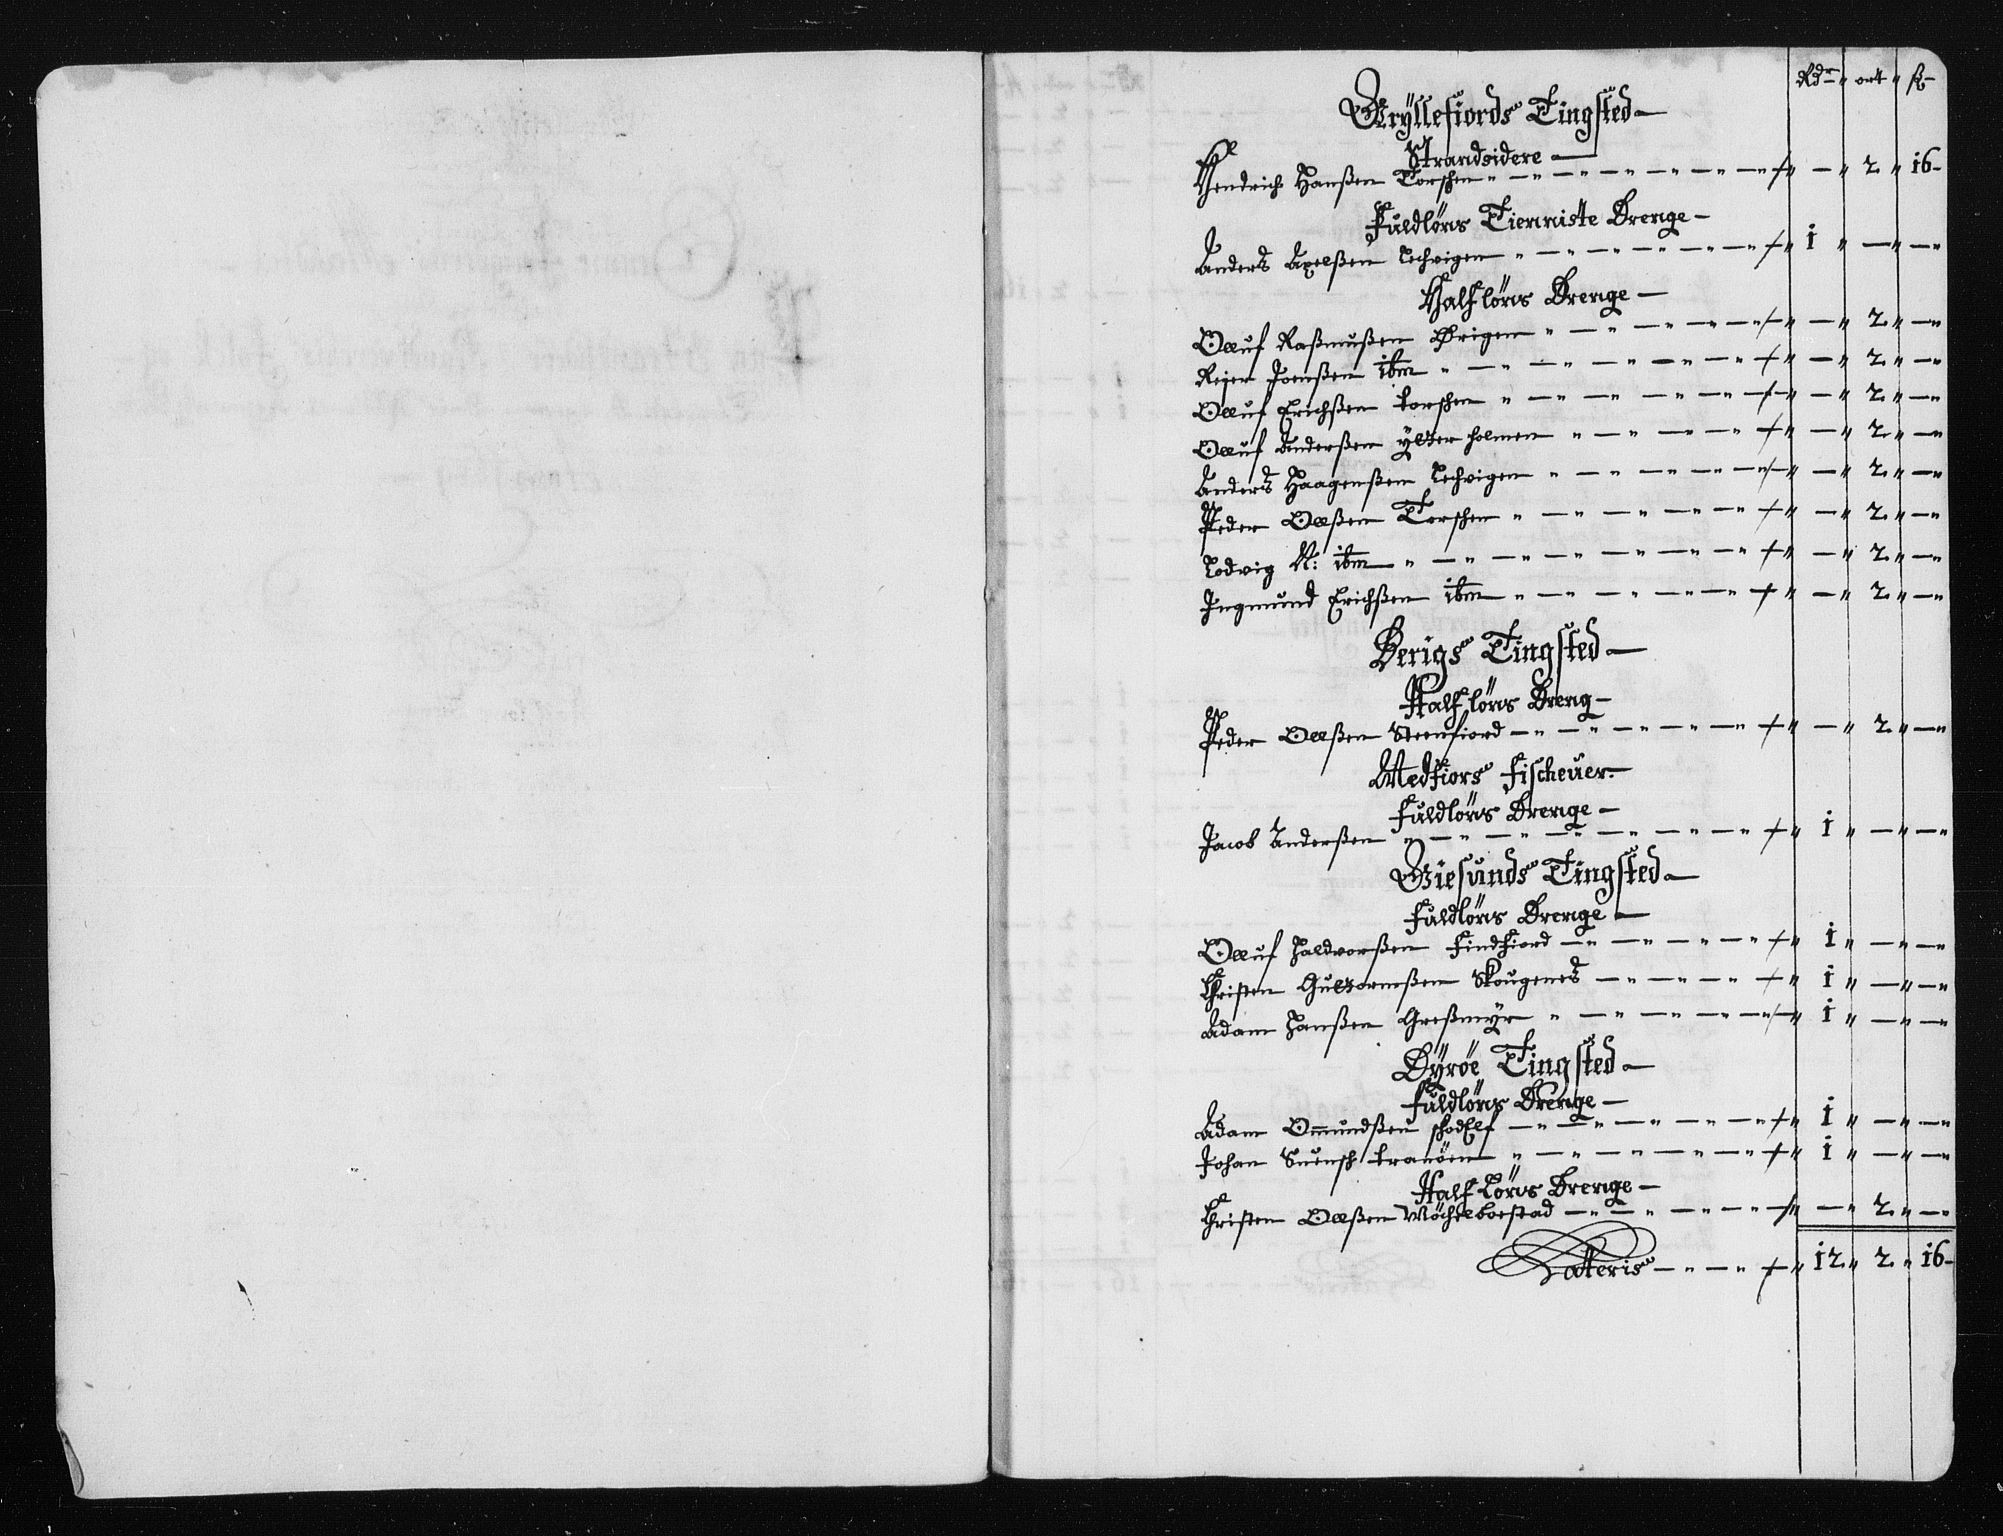 Rdr " ort " ß
Gryllefiords Tingsted
Strandsidere
Hendrich Hanßen Torschen " 2 " 16
Fuldløns Tienniste Drenge
Anders Axelßen Lechvigen 1 "
Half løns Drenge
Oluf Raßmußen Ørigen " 2 "
Reier Joenßen ibm " 2 "
Oluf Erichßen torschen " 2 "
Oluf Anderßen ytter holmen " 2 "
Anders Haagenßen Lechvigen " 2 "
Peder Olßen Torschen " 2 "
Lodvig N: ibm " 2 "
Ingmund Erichßen ibm " 2 "
Bergs Tingsted
Half løns Dreng
Peder Olßen Steenfiord " 2 "
Medfiors Fischeuer.
Fuldløns Drenge
Jacob Anderßen 1 "
Giesunds Tingsted
Fuldløns Drenge
Oluf Haldvorßen Findfiord 1 "
Christen Guttormßen Skougenes 1 "
Adam Hanßen Greßmyr 1 "
Dyrøe Tingsted
Fuldløns Drenge
Adam Ommundßen 1 "
Johan Suensch tranøen 1 "
Half Løns Drenge
Christen Olßen 2 "
Latteris 12 " 2 " 16